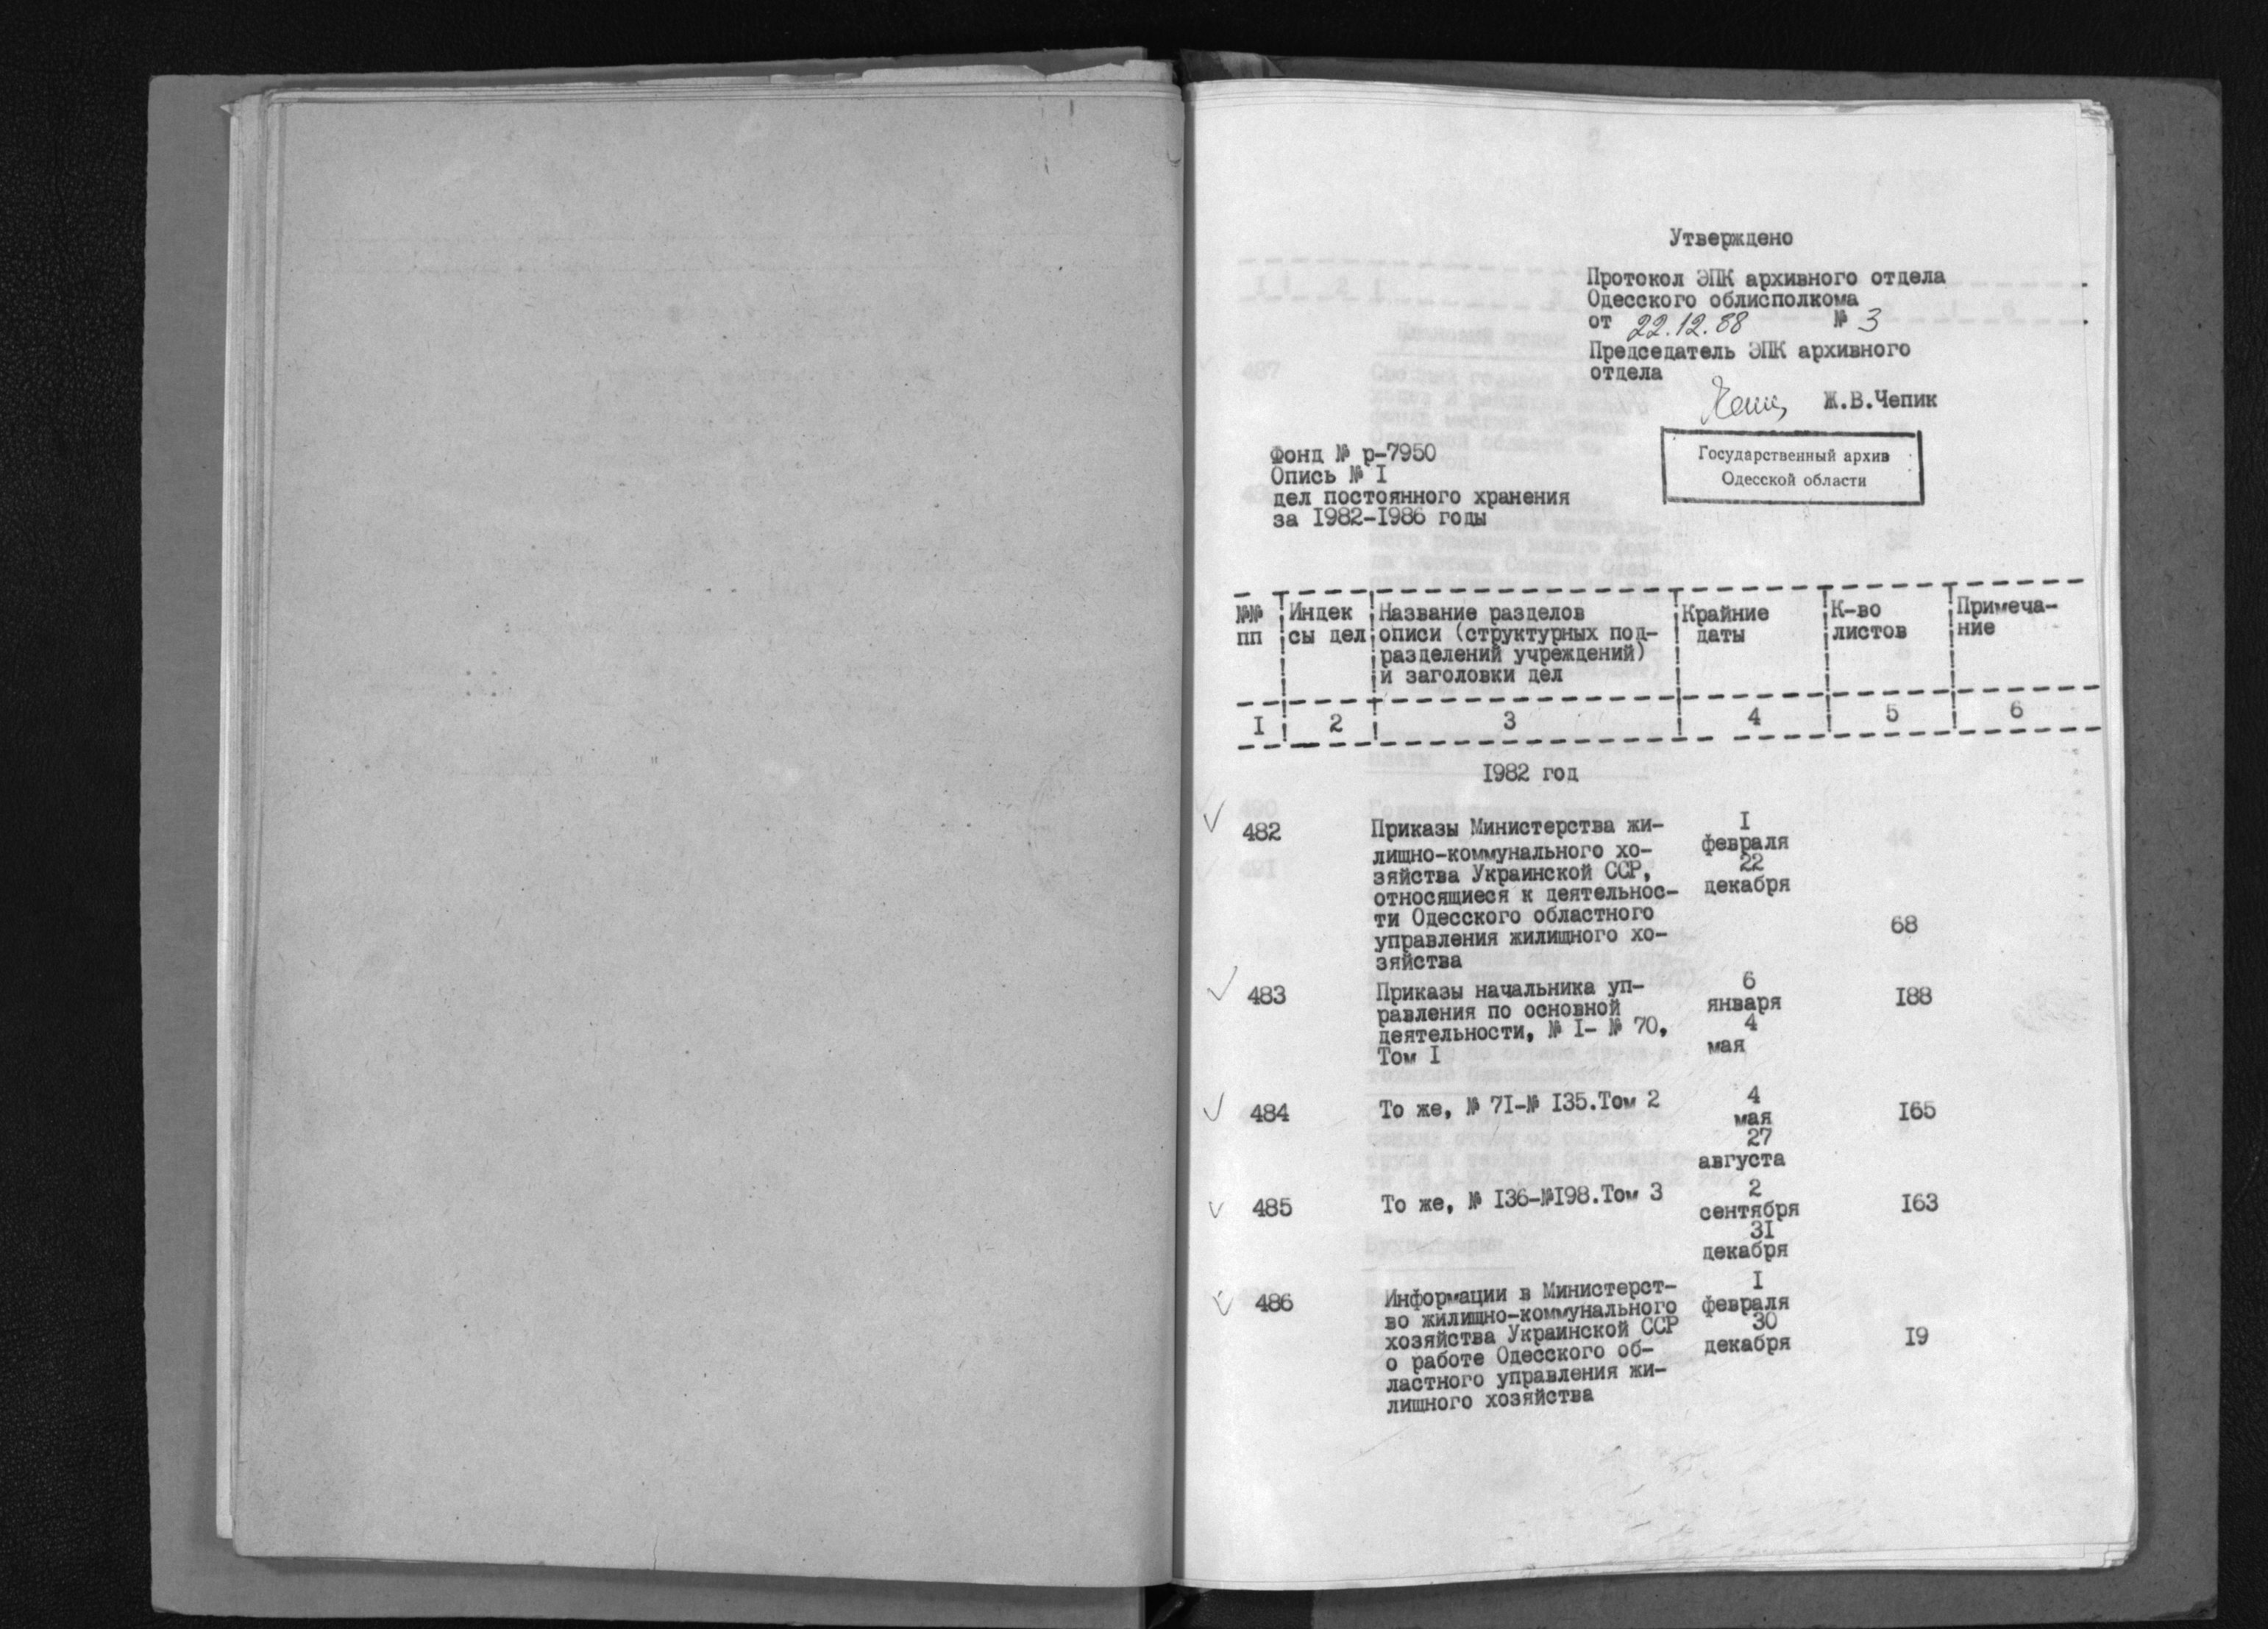 Утверждено
Протокол ЭПК архивного отдела
Одесского облисполкома
от 22.12.88 № 3
Председатель ЭПК архивного
отдела
Ж.В.Чепик
Государственный архив
Одесской области
Фонд № р-7950
Опись № I
дел постоянного хранения
за I982-I986 годы
№№ Индек Название разделов Крайние К-во Примеча-
пп сы дел описи (структурных под- даты листов ние
разделений учреждений)
и заголовки дел
I 2 3 4 5 6
I982 год
482 Приказы Министерства жи- I
лищно-коммунального хо- февраля
зяйства Украинской ССР, 22
относящиеся к деятельнос- декабря
ти Одесского областного
управления жилищного хо- 68
зяйства
483 Приказы начальника уп- 6 I88
равления по основной января
деятельности, № I- № 70, 4
Том I мая
484 То же, № 7I-№ I35.Том 2 4 I65
мая
27
августа
485 То же, № I36-№I98.Том 3 2 I63
сентября
3I
декабря
486 Информации в Министерст- I
во жилищно-коммунального февраля
хозяйства Украинской ССР 30
о работе Одесского об- декабря I9
ластного управления жи-
лищного хозяйства